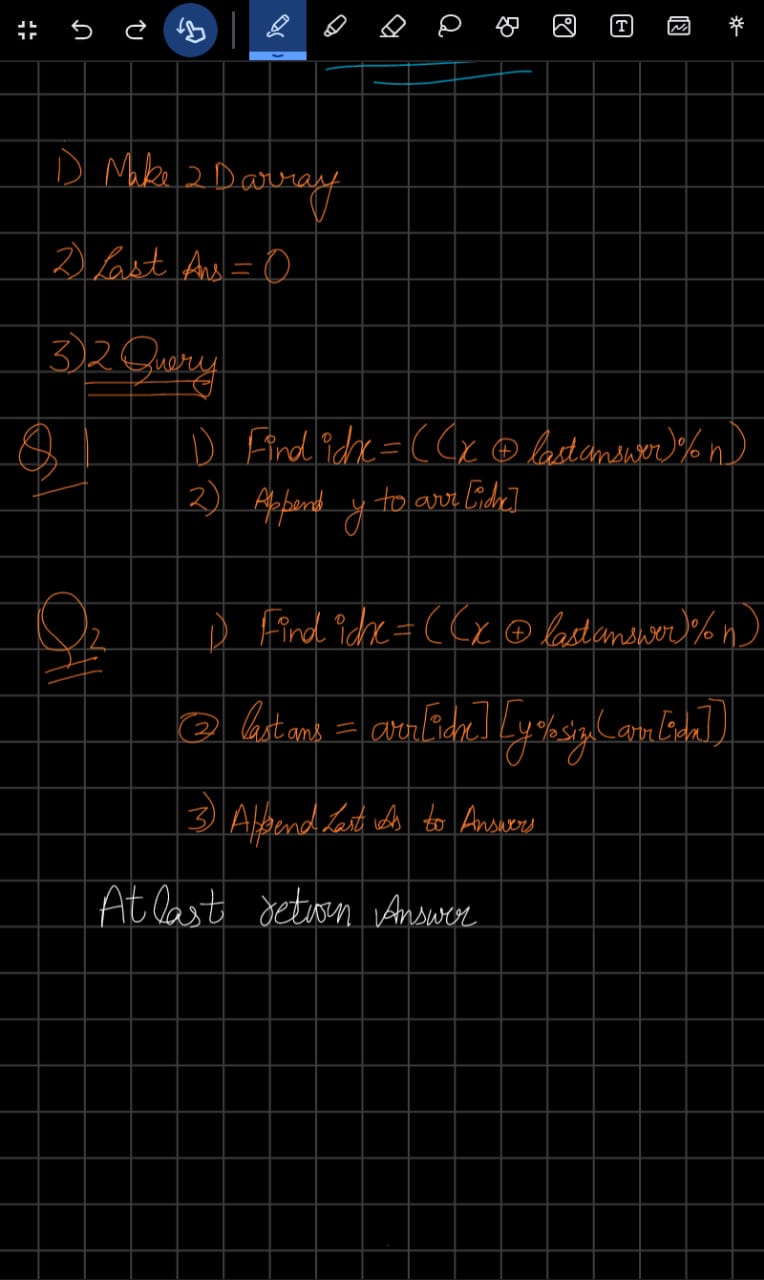 1) Make 2D array
2) Last Ans = 0
3) 2 Query
Q1
1) Find idx = ((x ⊕ lastanswer)% n)
2) Append y to arr[idx]
Q2
1) Find idx = ((x ⊕ lastanswer)% n)
② lastans = arr[idx] [y%size(arr[idx])
3) Append Last As to Answers
At last return Answer